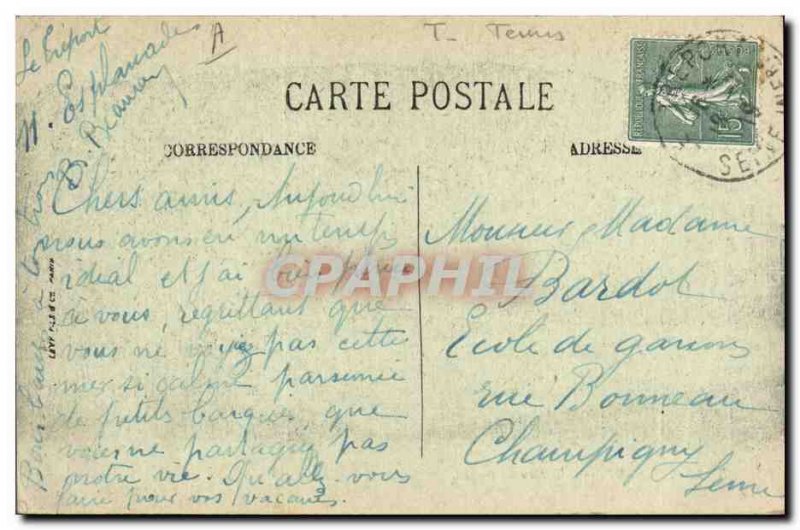 Le Tréport
11. Esplanade
A
T_ Tennis
CARTE POSTALE
CORRESPONDANCE
ADRESSE
REPUBLIQUE FRANÇAISE
15
Chers amis, Aujourd'hui
nous avons eu un temps
idéal et j'ai bien pensé
à vous, regrettant que
vous ne voyiez pas cette
mer si calme parsemée
de petits barques, que
vous ne partagiez pas
notre vie. Qu'allez vous
faire pour vos vacances.
Monsieur Madame
Bardot
Ecole de garçons
rue Bonneau
Champigny
Seine
LEVY FILS & Cie PARIS
CPAPHIL